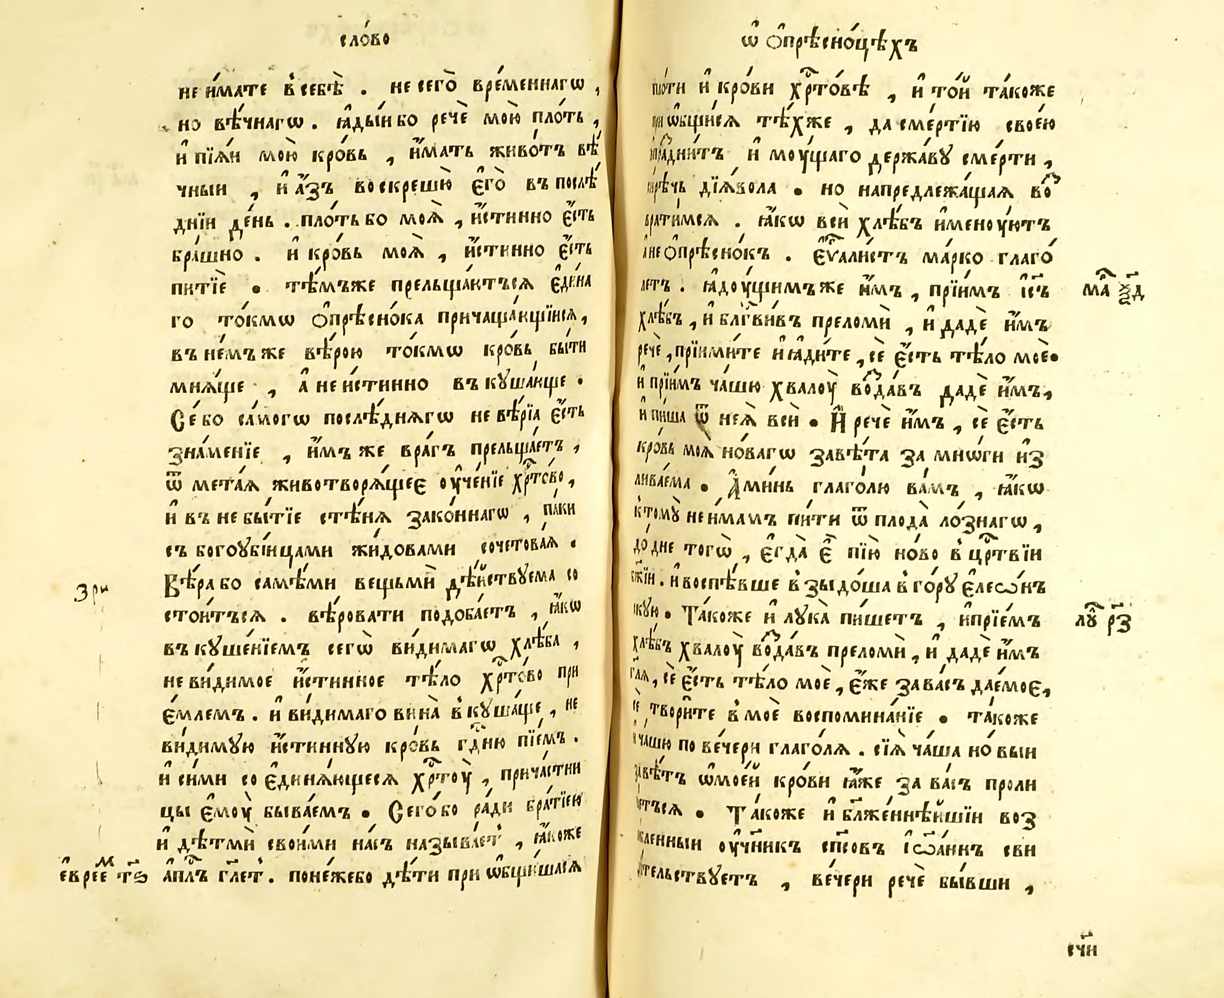 сло́во
не и҆́мате в себѣ̀ . не сего̀ вре́меннагѡ ,
но вѣ́чнагѡ . ꙗ҆ды́и бо речѐ мою̀ пло́ть ,
и҆ пїѧ́и мою̀ кро́вь , и҆́мать живо́тъ вѣ́
чныи , и҆ а҆́зъ воскрешю̀ є҆го̀ въ послѣ́
днїи де́нь . пло́ть бо моѧ̀ , и҆́стинно є҆́сть
бра́шно . и҆ кро́вь моѧ̀ , и҆́стинно є҆́сть
питїѐ . тѣ́мъже прельща́ютъсѧ є҆ди́на
го то́кмѡ ѻ҆прѣсно́ка причаща́ющїисѧ ,
въ не́мъ же вѣ́рою то́кмѡ кро́вь бы́ти
мнѧ́ще , а҆ не и҆́стинно въ куша́юще .
Се́ бо са́могѡ послѣ́днѧгѡ невѣ́рїа є҆́сть
зна́менїе , и҆́мъ же вра́гъ прельща́етъ ,
ѿ мета́ѧ животворѧ́щее оу҆че́нїе хрⷭ҇то́во ,
и҆ въ небытїѐ стѣ́нѧ зако́ннагѡ , па́ки
съ богоубі́йцами жи́довами сочетова́ѧ .
Вѣ́ра бо самѣ́ми вещьмѝ дѣ́йствуема со
стои́тъсѧ . вѣ́ровати подоба́етъ , ꙗ҆́кѡ
въ куше́нїемъ сегѡ̀ ви́димагѡ хлѣ́ба ,
неви́димое и҆́стинное тѣ́ло хрⷭ҇то́во прї
е҆́млемъ . и҆ ви́димаго вина̀ в куша́ще , не
ви́димую и҆́стинную кро́вь гдⷭ҇ню пїе́мъ .
и҆ си́ми со є҆динѧ́ющесѧ хрⷭ҇тоу̀ , прича́стни
цы є҆моу̀ быва́емъ . Сего́ бо ра́ди бра́тїею
и҆ дѣтмѝ свои́ми на́съ называ́етъ , ꙗ҆́коже
а҆пⷭ҇лъ гл҃етъ . поне́жебо дѣ́ти при ѡ҆бщи́шасѧ
зри
є҆вре́е
ѡ҆ ѻ҆прѣсно́цѣхъ
пло́ти и҆ кро́ви хрⷭ҇то́вѣ , и҆ то́й та́коже
при ѡ҆бщи́сѧ тѣ́хже , да сме́ртїю свое́ю
и҆ моу́щаго держа́ву сме́рти ,
дїѧ́вола . но на предлежа́щаѧ во
врати́мсѧ . ꙗ҆́кѡ всѝ хлѣ́бъ и҆меноу́ютъ
а҆ не ѻ҆прѣсно́къ . є҆ѵⷢ҇али́стъ ма́рко глаго́
летъ . ꙗ҆доу́щимъ же и҆̀мъ , прїи́мъ і҆с҃ъ
хлѣ́бъ , и҆ блгⷭ҇ви́въ преломѝ , и҆ дадѐ и҆̀мъ
речѐ , прїими́те и҆ ꙗ҆ди́те , сѐ є҆́сть тѣ́ло моѐ .
и҆ прїи́мъ ча́шю хвалоу̀ возда́въ дадѐ и҆̀мъ ,
и҆ пи́ша ѿ неѧ̀ всѝ . И҆ речѐ и҆̀мъ , сѐ є҆́сть
кро́вь моѧ̀ но́вагѡ завѣ́та за мнѡ́ги из
лива́ема . А҆ми́нь глаго́лю ва́мъ , ꙗ҆́кѡ
ктомꙋ̀ не и҆́мамъ пи́ти ѿ плода̀ ло́знагѡ ,
до дне тогѡ̀ , є҆гда̀ є҆̀ пїю̀ но́во в црⷭ҇твїи
бж҃їи . и҆ воспѣ́вше в зыдо́ша в го́ру є҆леѡ́нъ
скую . Та́коже и҆ лука̀ пи́шетъ , и҆ прїе́мъ
хлѣ́бъ хвалоу̀ возда́въ преломѝ , и҆ дадѐ и҆̀мъ
гл҃ѧ , сѐ є҆́сть тѣ́ло моѐ , є҆́же за ва́съ дае́мое ,
сѐ твори́те в моѐ воспомина́нїе . та́коже
и҆ ча́шю по ве́чери глаго́лѧ . сїѧ̀ ча́ша но́выи
завѣ́тъ ѡ҆ мое́й кро́ви ꙗ҆́же за ва́съ проли
е́тъсѧ . Та́коже и҆ бл҃же́ннѣйшїи воз
лю́бленныи оу҆чн҃и́къ сп҃совъ і҆ѡа́ннъ сви
дѣтельствуетъ , ве́чери речѐ бы́вши ,
ма ѯд
лꙋ рз
счи